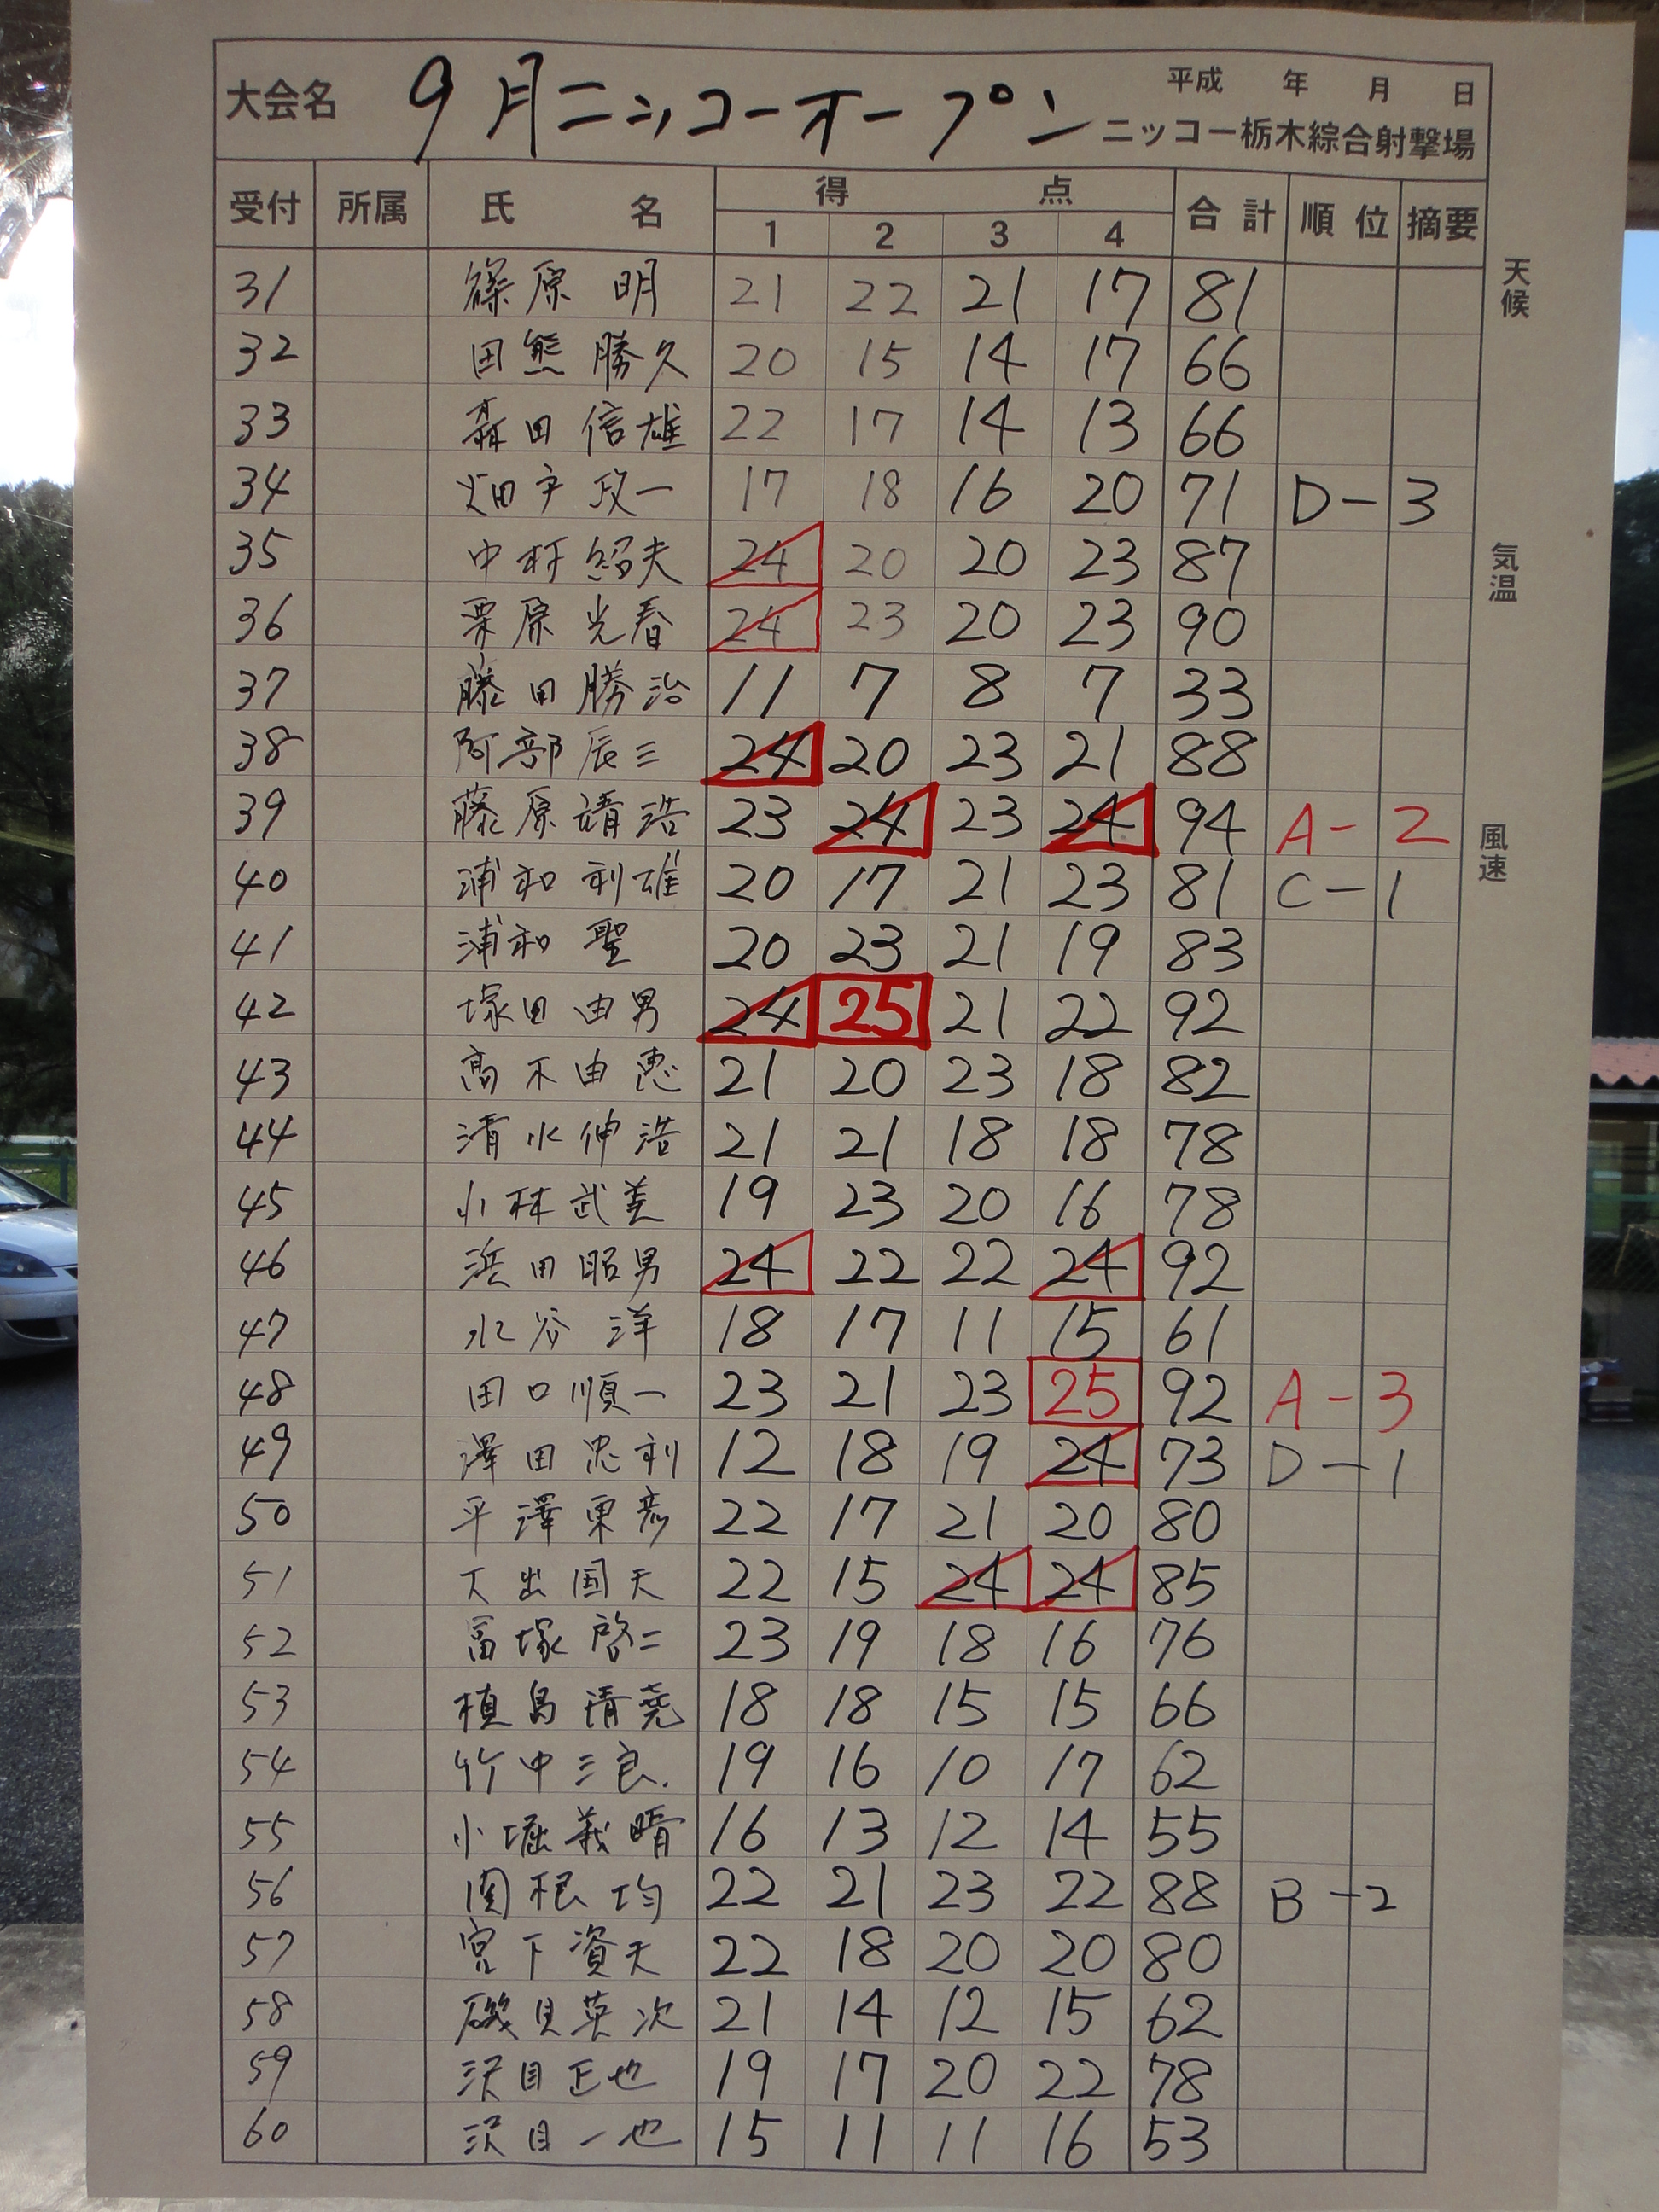 大会名 9月ニッコーオープン 平成 年 月 日
ニッコー栃木綜合射撃場
受付 所属 氏 名 得 点 合計 順位 摘要
1 2 3 4
31 篠原 明 21 22 21 17 81
32 田熊勝久 20 15 14 17 66
33 森田信雄 22 17 14 13 66
34 畑戸政一 17 18 16 20 71 D-3
35 中村紹夫 24 20 20 23 87
36 栗原光春 24 23 20 23 90
37 藤田勝治 11 7 8 7 33
38 阿部辰三 24 20 23 21 88
39 藤原靖浩 23 24 23 24 94 A-2
40 浦和利雄 20 17 21 23 81 C-1
41 浦和 聖 20 23 21 19 83
42 塚田由男 24 25 21 22 92
43 高木由恵 21 20 23 18 82
44 清水伸浩 21 21 18 18 78
45 小林武美 19 23 20 16 78
46 浜田昭男 24 22 22 24 92
47 水谷 洋 18 17 11 15 61
48 田口順一 23 21 23 25 92 A-3
49 澤田忠利 12 18 19 24 73 D-1
50 平澤東彦 22 17 21 20 80
51 大出国夫 22 15 24 24 85
52 冨塚啓二 23 19 18 16 76
53 植島清堯 18 18 15 15 66
54 竹中三良 19 16 10 17 62
55 小堀義晴 16 13 12 14 55
56 関根 均 22 21 23 22 88 B-2
57 宮下資夫 22 18 20 20 80
58 磯貝英次 21 14 12 15 62
59 沢目正也 19 17 20 22 78
60 沢目一也 15 11 11 16 53
天候
気温
風速